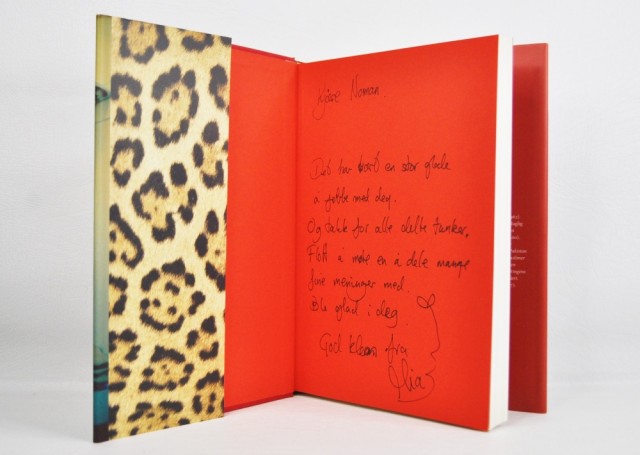 Kjære Noman.
Det har vært en stor glede
å jobbe med deg.
Og takk for alle delte tanker,
Flott å møte en å dele mange
fine meninger med.
Ble glad i deg.
God klem fra
Mia